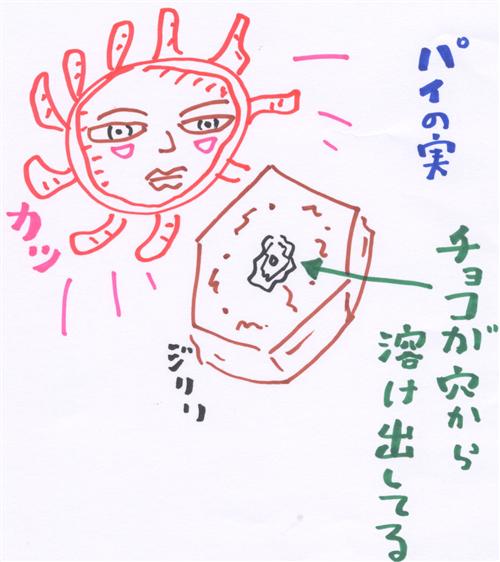 パイの実
チョコが穴から
溶け出してる
カッ
ジリリ